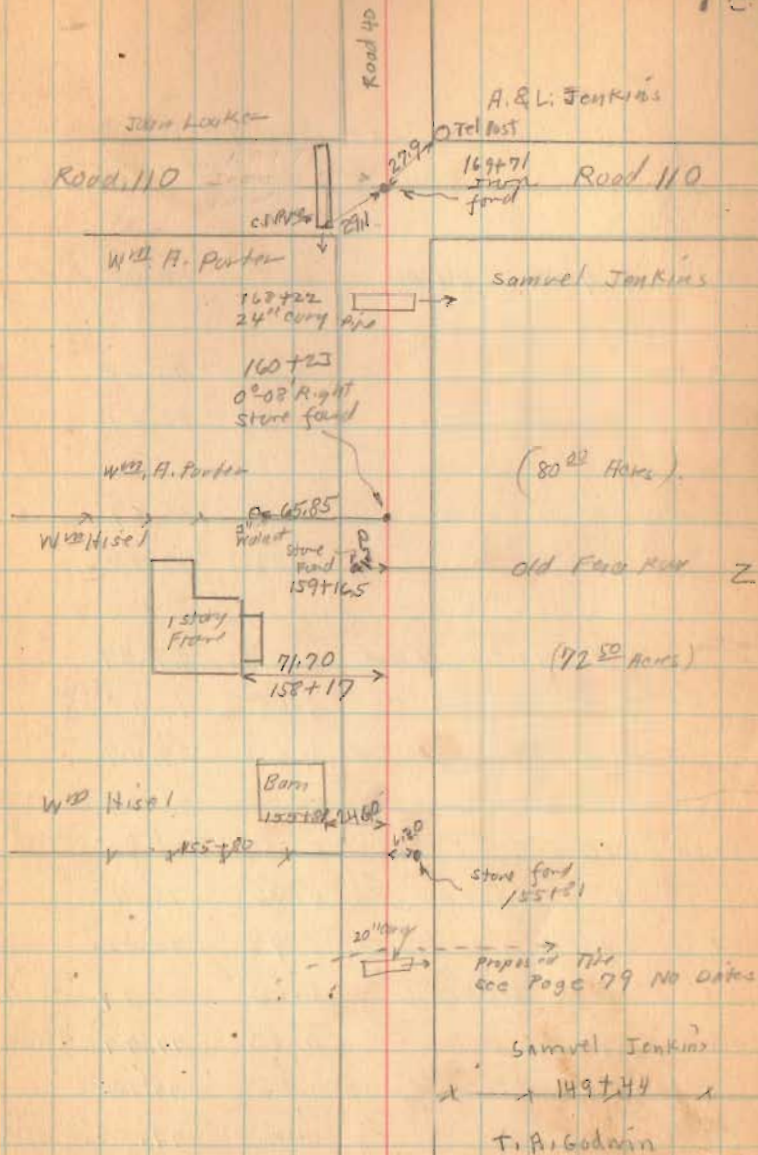 Road 40
A. & L. Jenkins
John Louker
Tel Post
27.9
169+71
Iron
fond
Road 110
Road 110
29.1
Wm A. Porter
Samuel Jenkins
168+22
24" Corg Pipe
160+23
0°-08' Right
Stone found
Wm. A. Porter
(80 00 Acres).
65.85
Wm Hisel
Walnut
Stone
Fond
159+16.5
Old Fence Row
1 story
Frame
71.70
158+17
(72 50 Acres)
Wm Hisel
Barn
155+81
24.60
155+80
Stone fond
155+81
20" Corg
Proposed Tile
see Page 79 No Dates
Samuel Jenkins
149+44
T. A. Godwin